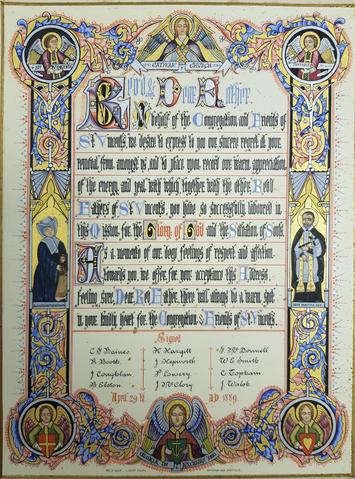 CATHOLIC CHURCH
Rev.d & Dear Father.
On behalf of the Congregation and Friends of
St Vincents, we desire to express to you our sincere regret at your
removal from amongst us and to place upon record our warm appreciation
of the energy and zeal with which together with the other Rev.d
Fathers of St Vincents, you have so successfully laboured in
this Mission for the Glory of God and the Salvation of Souls.
As a momento of our deep feelings of respect and affection
towards you, we offer for your acceptance this Address,
feeling sure, Dear Rev.d Father, there will always be a warm spot
in your kindly heart for the Congregation & Friends of St Vincents.
Signed
C. S. Baines. H. Hargill G. McDonnell
R. Booth. J. Hepworth W. E. Smith
J. Coughlan P. Lowery C. Topham
B. Elston. J. McClory J. Walsh
April 29th AD 1889.